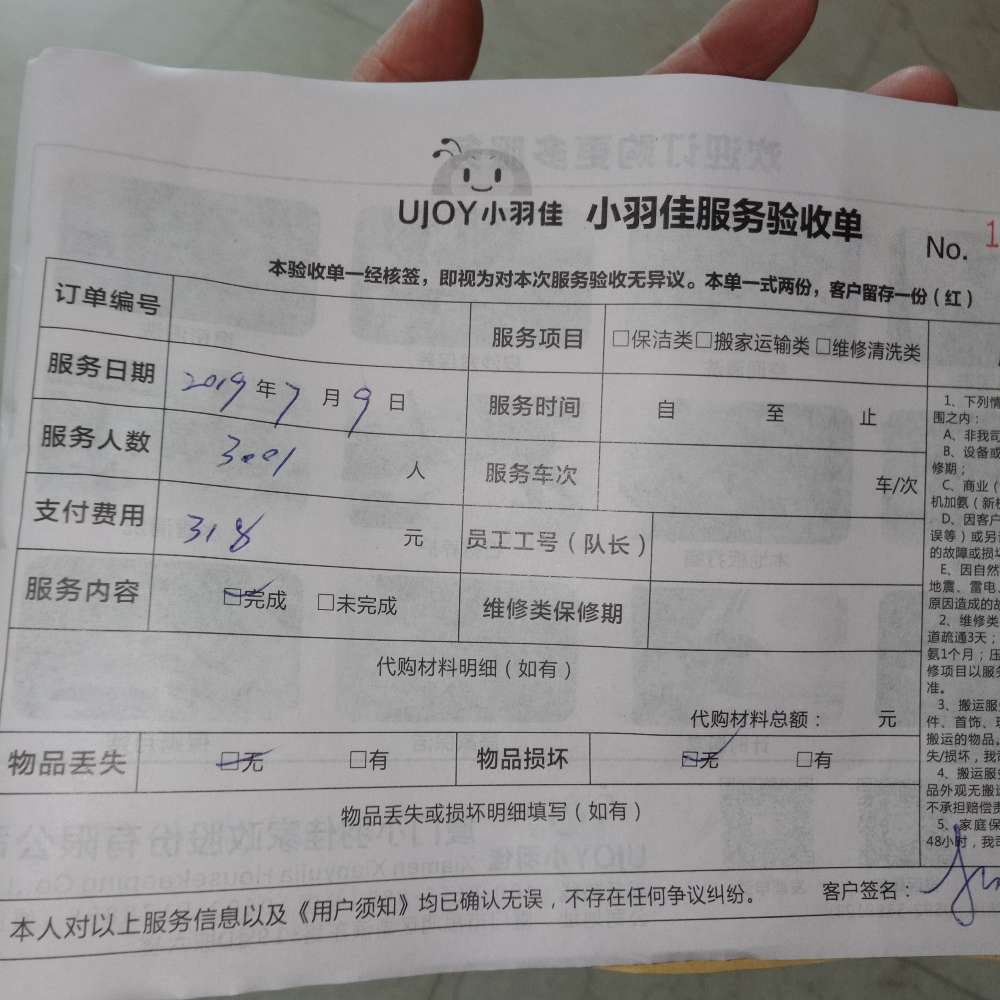 UJOY小羽佳 小羽佳服务验收单
No. 1
本验收单一经核签，即视为对本次服务验收无异议。本单一式两份，客户留存一份（红）
订单编号 服务项目 □保洁类□搬家运输类 □维修清洗类
服务日期 2019年7月9日 服务时间 自 至 止
服务人数 3001 人 服务车次 车/次
支付费用 318 元 员工工号（队长）
服务内容 □完成 □未完成 维修类保修期
代购材料明细（如有）
代购材料总额： 元
物品丢失 □无 □有 物品损坏 □无 □有
物品丢失或损坏明细填写（如有）
本人对以上服务信息以及《用户须知》均已确认无误，不存在任何争议纠纷。 客户签名：
1、下列情
围之内：
A、非我司
B、设备或
修期；
C、商业（
机加氨（新机
D、因客户
误等）或另
的故障或损坏
E、因自然
地震、雷电、
原因造成的故
2、维修类
道疏通3天；
氨1个月；压
修项目以服务
准。
3、搬运服
件、首饰、现
搬运的物品。
失/损坏，我司
4、搬运服务
品外观无搬运
不承担赔偿责
5、家庭保
48小时，我司